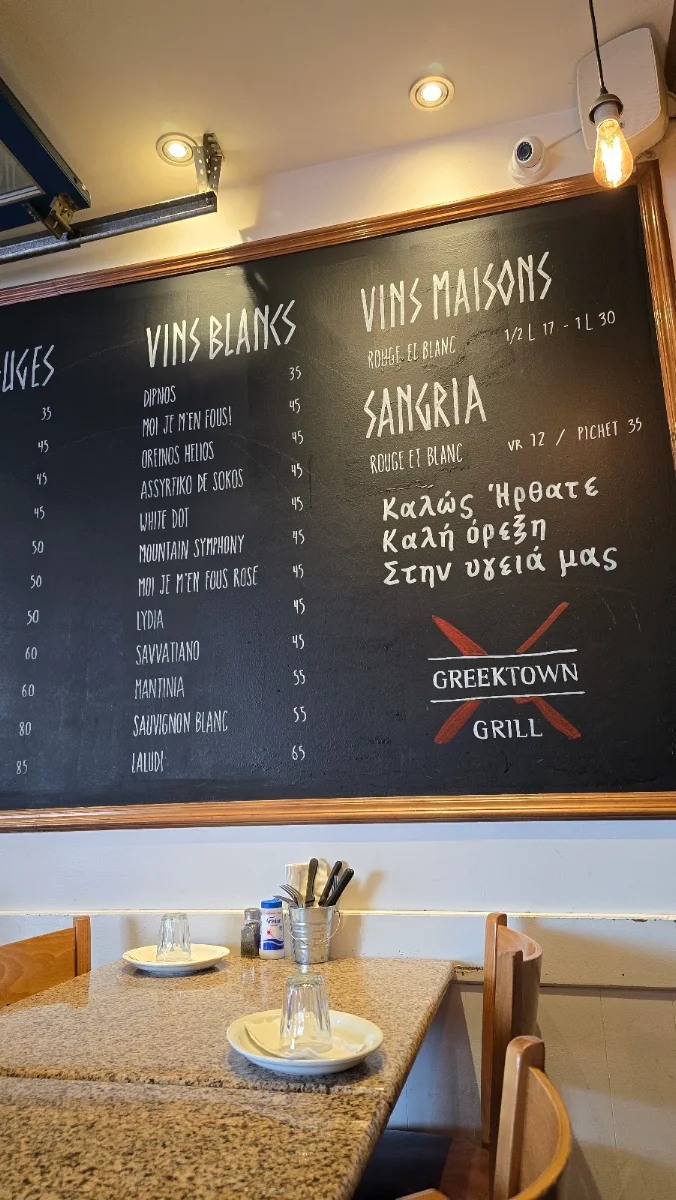 UGES
35
45
45
45
50
50
50
60
60
80
85
VINS BLANCS
DIPNOS 35
MOI JE M'EN FOUS! 45
OREINOS HELIOS 45
ASSYRTIKO DE SOKOS 45
WHITE DOT 45
MOUNTAIN SYMPHONY 45
MOI JE M'EN FOUS ROSE 45
LYDIA 45
SAVVATIANO 45
MANTINIA 55
SAUVIGNON BLANC 55
LALUDI 65
VINS MAISONS
ROUGE ET BLANC 1/2 L 17 - 1 L 30
SANGRIA
ROUGE ET BLANC VR 12 / PICHET 35
Καλώς Ήρθατε
Καλή όρεξη
Στην υγειά μας
GREEKTOWN
GRILL